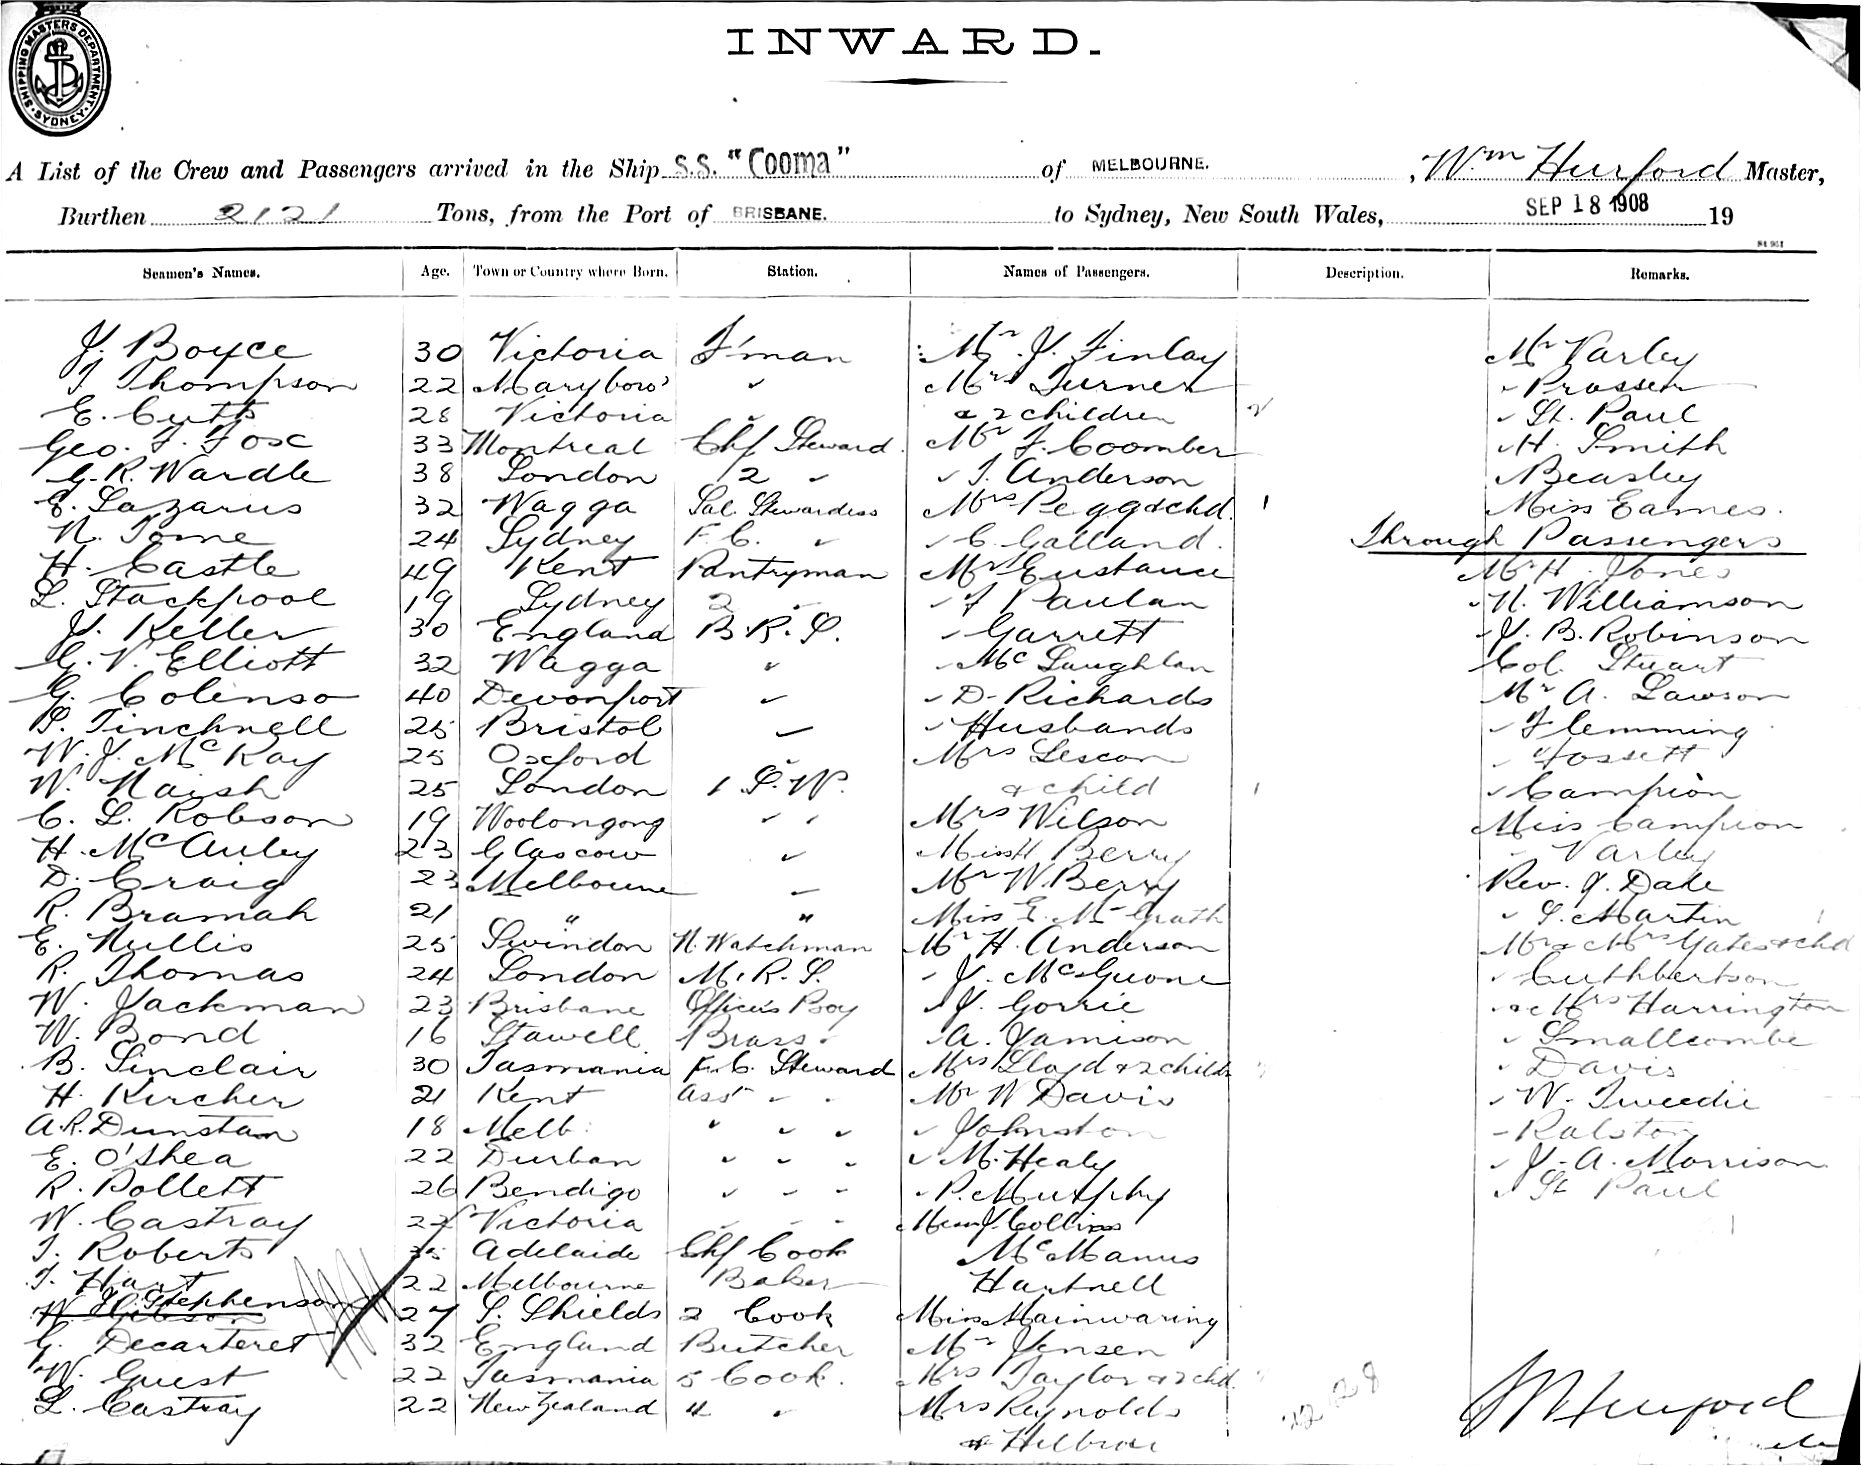 SHIPPING MASTERS DEPARTMENT · SYDNEY ·
INWARD.
A List of the Crew and Passengers arrived in the Ship S.S. "Cooma" of MELBOURNE. , Wm Hurford Master,
Burthen 2121 Tons, from the Port of BRISBANE. to Sydney, New South Wales, SEP 18 1908 19
Seamen's Names. Age. Town or Country where Born. Station. Names of Passengers. Description. Remarks.
J. Boyce 30 Victoria F'man Mr. J. Finlay Mr Varley
T Thompson 22 Maryboro' " Mrs Turner " Prosser
E. Cutts 28 Victoria " & 2 children 2 " St. Paul
Geo. F. Fox 33 Montreal Chf Steward Mr F. Coomber " H. Smith
G. R. Wardle 38 London 2 " " T. Anderson " Beasley
E. Lazarus 32 Wagga Sal. Stewardess Mrs Pegg & chd. 1 Miss Eames.
N. Tome 24 Sydney F.C. " " C. Galland. Through Passengers
H. Castle 49 Kent Pantryman Mr Eustace Mr H. Jones
L. Stackpool 19 Sydney 2 " " F Paulan " N. Williamson
J. Keller 30 England B.R.S. " Garrett " J. B. Robinson
G. V. Elliott 32 Wagga " " McLaughlan Col. Stuart
G. Colenso 40 Devonport " " D. Richards Mr A. Lawson
S. Tinchnell 25 Bristol " " Husbands " Flemming
W. J. McKay 25 Oxford " Mrs Lescon " Fossett
W. Naish 25 London 1 S.W. & child 1 " Campion
C. L. Robson 19 Woolongong " " Mrs Wilson Miss Campion
H. McAuley 23 Glascow " Miss H Berry " Varley
D. Craig 23 Melbourne " Mr W. Berry Rev. J. Dale
R. Bramah 21 " " Miss E. McGrath " S. Martin
E. Nullis 25 Swindon N. Watchman Mr H. Anderson Mr & Mrs Yates & chd
R. Thomas 24 London M.R.S. " J. McGuone " Cuthbertson
W. Jackman 23 Brisbane Officers Boy " J. Gorrie " & Mrs Harrington
W. Bond 16 Stawell Brass " " A. Jamison " Smallcombe
B. Sinclair 30 Tasmania F.C. Steward Mrs Lloyd & 2 childn " Davis
H. Kircher 21 Kent Asst " " Mr W Davis " W. Tweedie
A.R. Dunstan 18 Melb. " " " " Johnston " Ralston
E. O'Shea 22 Durban " " " " M. Healy " J. A. Morrison
R. Pollett 26 Bendigo " " " " P. Murphy " St Paul
W. Castray 22 Victoria " " " J. Collins
T. Roberts 35 Adelaide Chf Cook McManus
T. Hart 22 Melbourne Baker Hartnell
H. Stephenson
W. Gibson 27 S. Shields 2 Cook Miss Mainwaring
G. Decarteret 32 England Butcher Mr Jensen
W. Guest 22 Tasmania 5 Cook. Mrs Taylor & 2 chd.
L. Castray 22 New Zealand 4 " Mrs Reynolds
WHurford